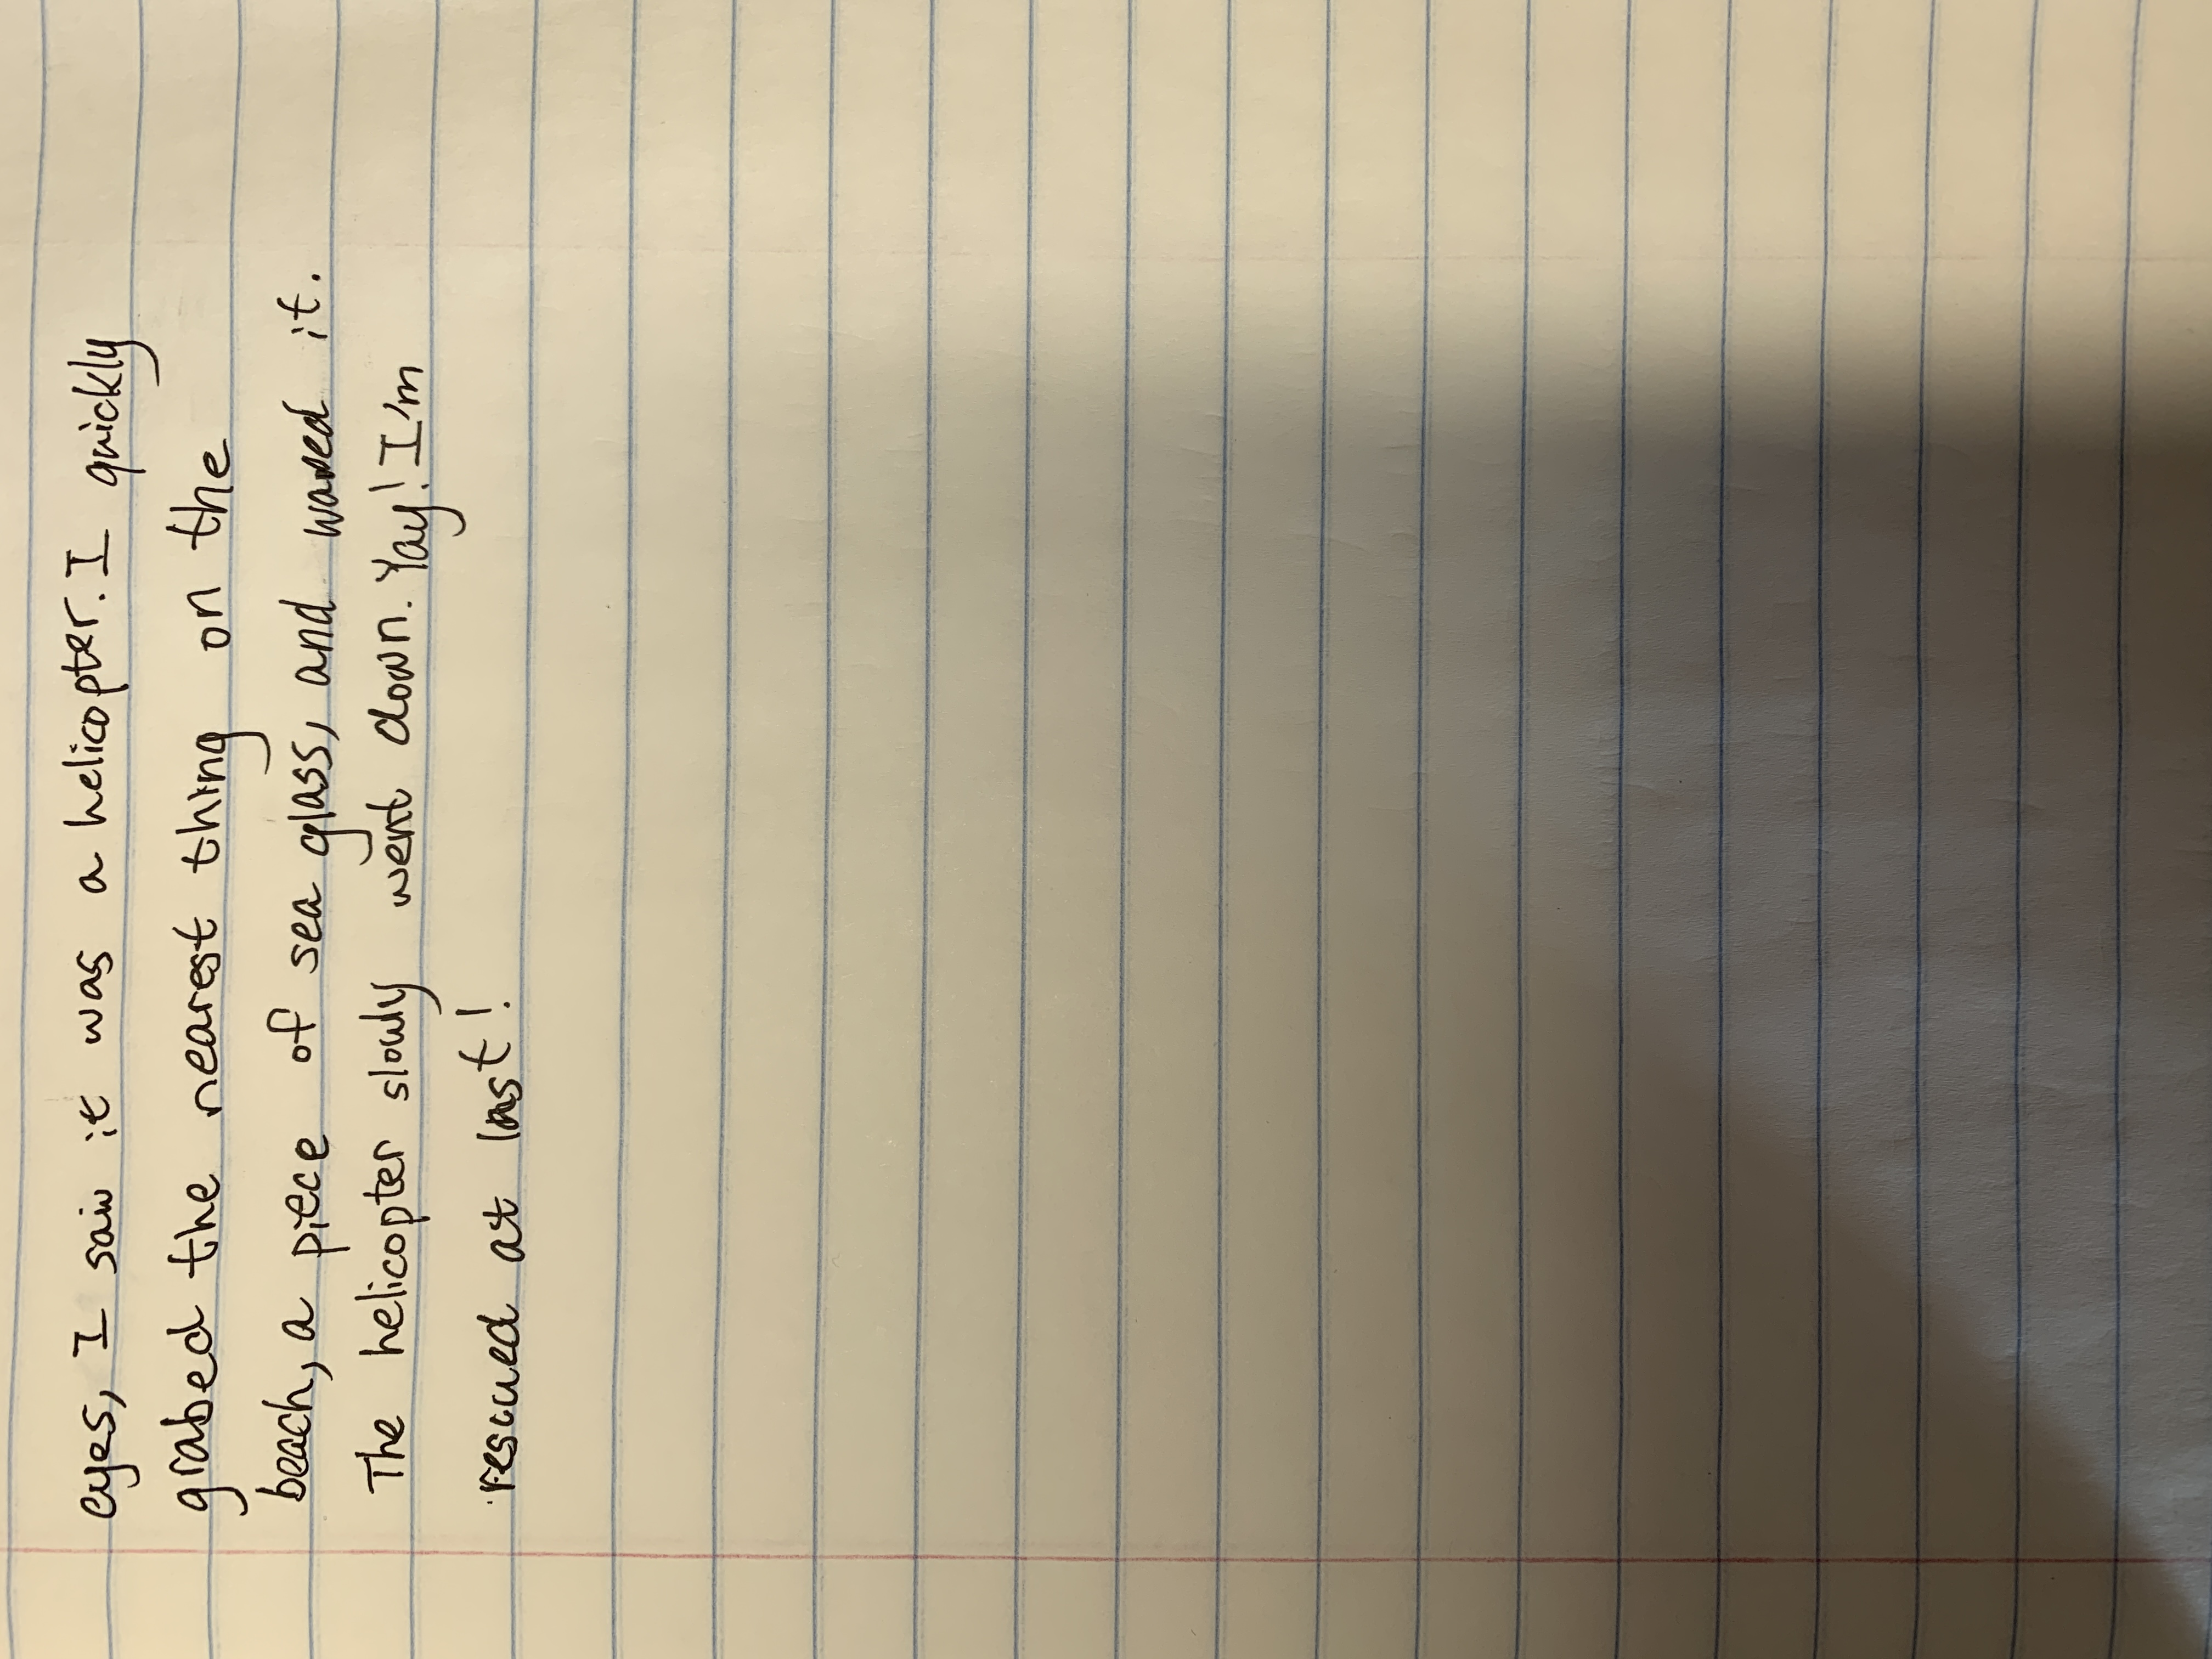 eyes, I saw it was a helicopter. I quickly
grabed the nearest thing on the
beach, a piece of sea glass, and waved it.
The helicopter slowly went down. Yay! I'm
rescued at last!